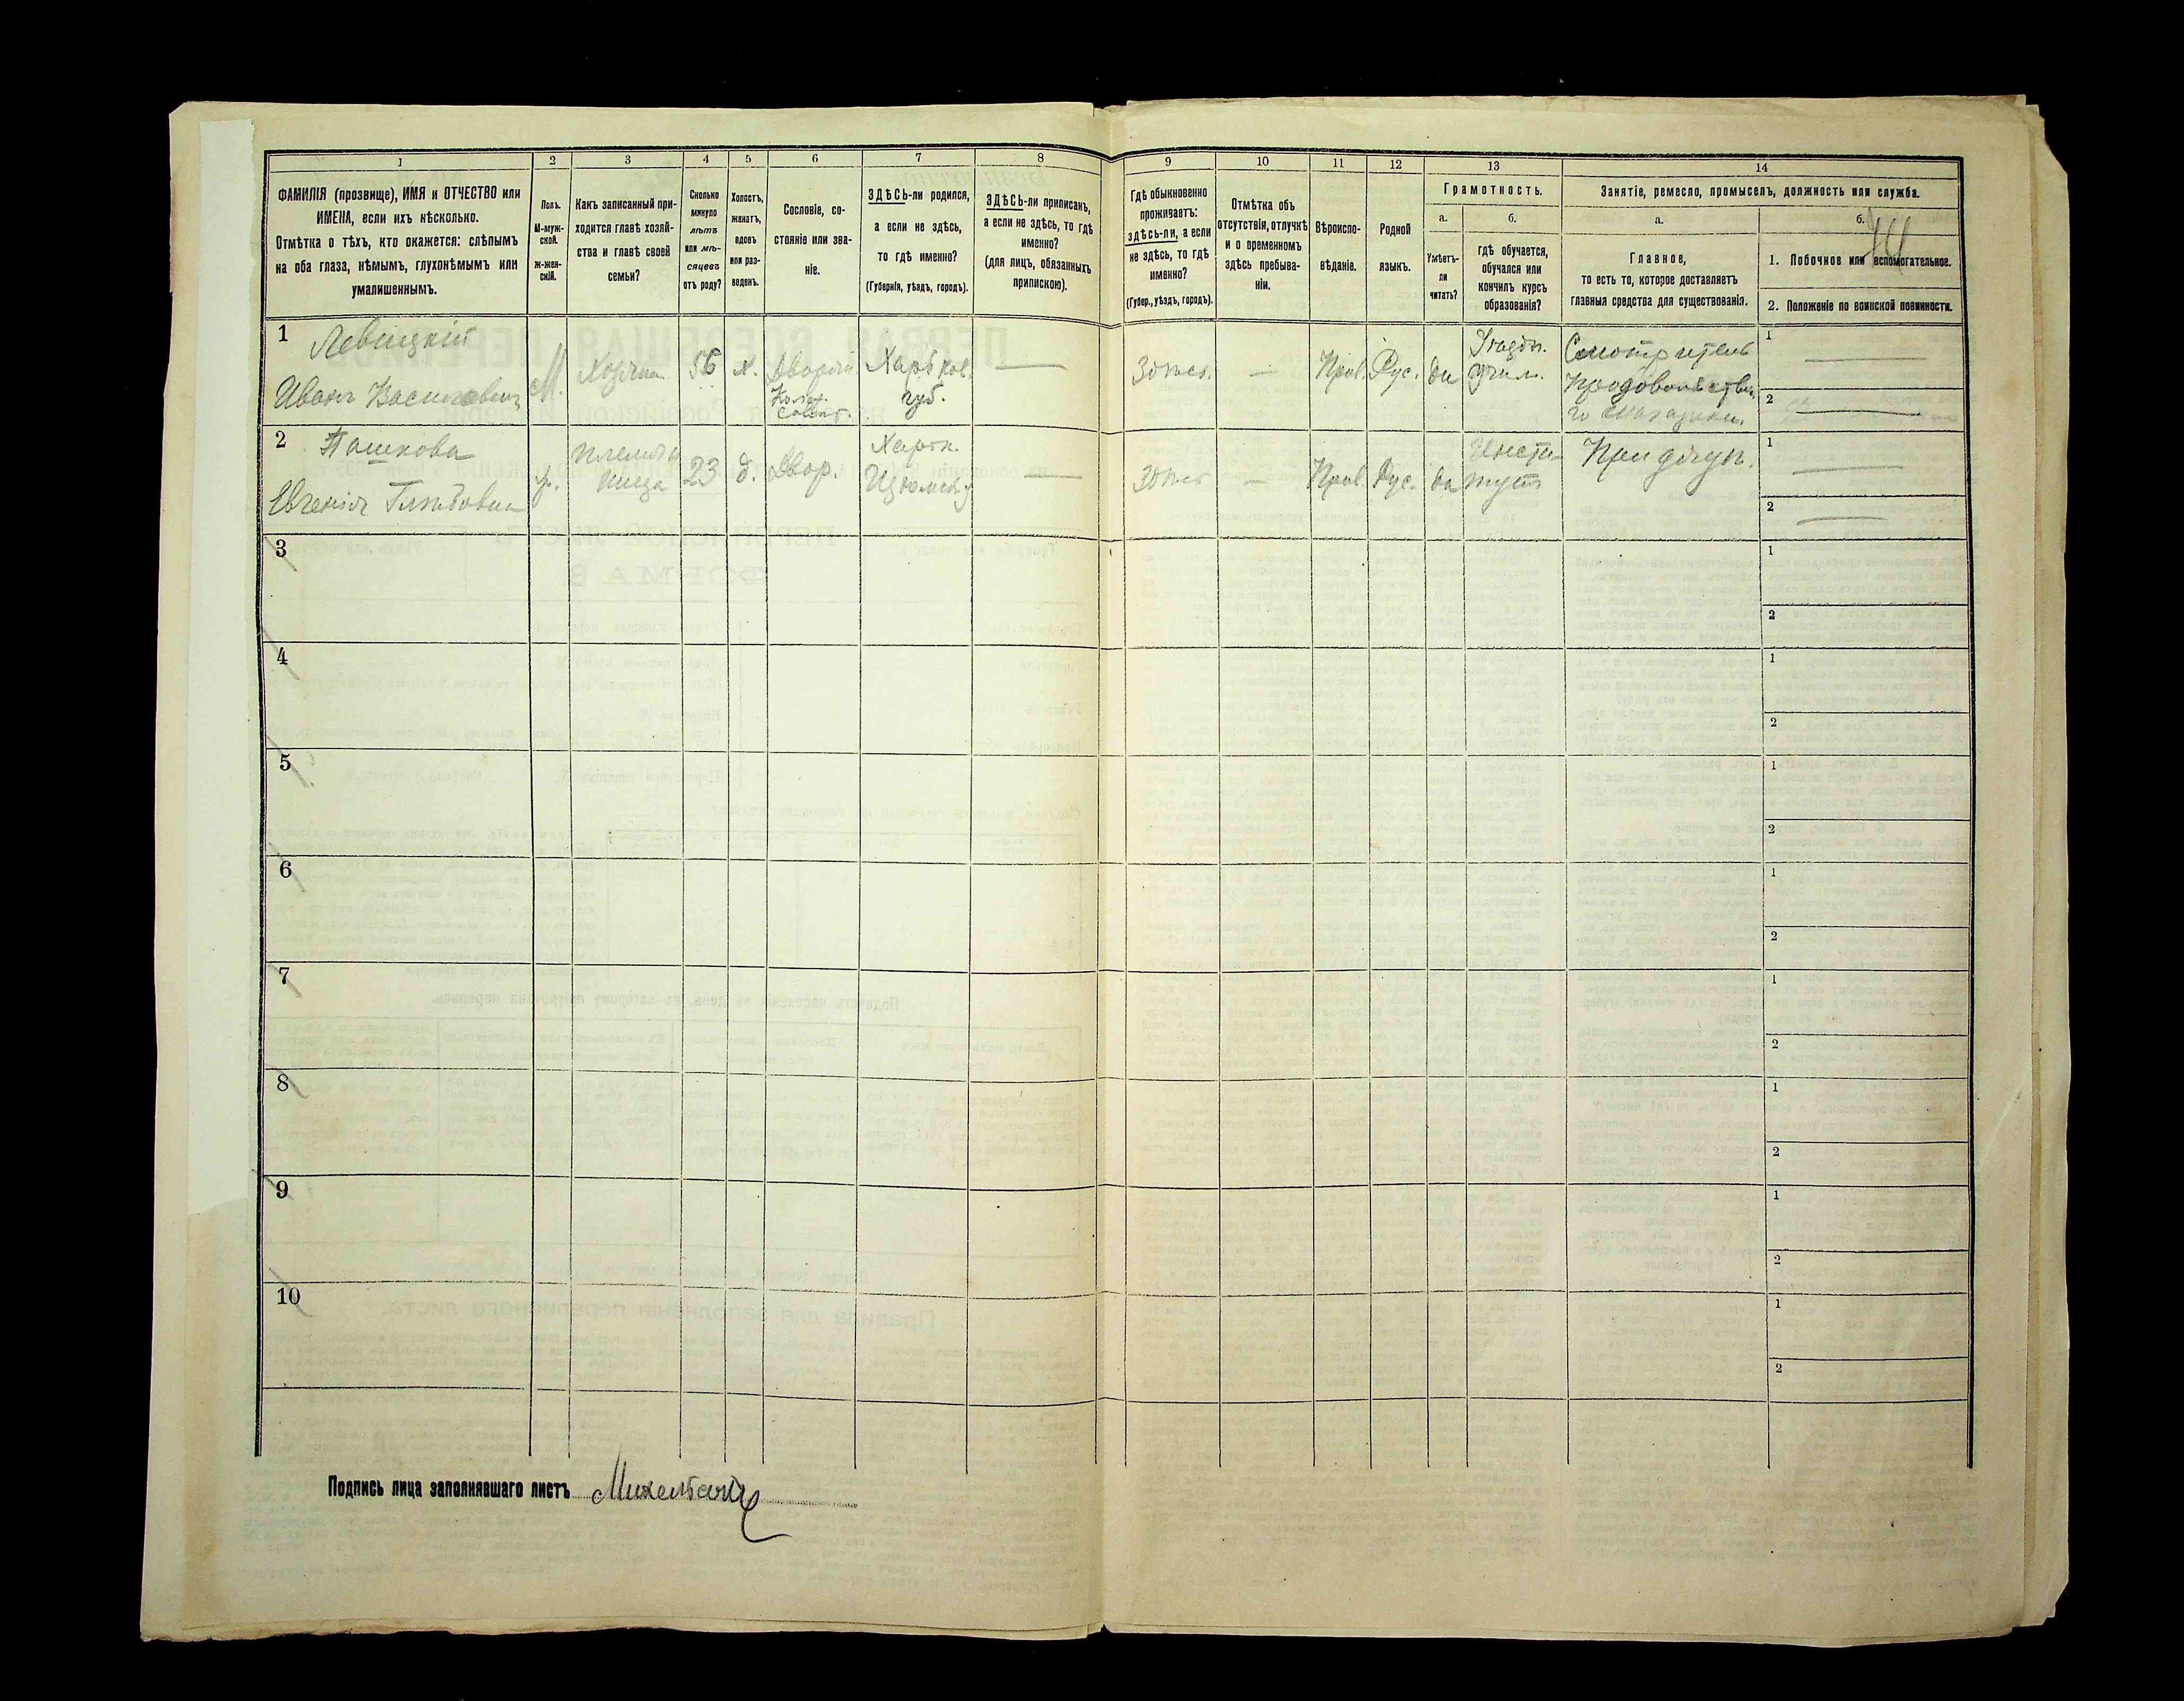 1
2
3
4
5
6
7
8
ФАМИЛІЯ (прозвище), ИМЯ и ОТЧЕСТВО или
ИМЕНА, если ихъ нѣсколько.
Отмѣтка о тѣхъ, кто окажется: слѣпымъ
на оба глаза, нѣмымъ, глухонѣмымъ или
умалишеннымъ.
Полъ.
М-муж-
ской.
Ж-жен-
скій.
Какъ записанный при-
ходится главѣ хозяй-
ства и главѣ своей
семьи?
Сколько
минуло
лѣтъ
или мѣ-
сяцевъ
отъ роду?
Холостъ,
женатъ,
вдовъ
или раз-
веденъ.
Сословіе, со-
стояніе или зва-
ніе.
ЗДѢСЬ-ли родился,
а если не здѣсь,
то гдѣ именно?
(Губернія, уѣздъ, городъ).
ЗДѢСЬ-ли приписанъ,
а если не здѣсь, то гдѣ
именно?
(для лицъ, обязанныхъ
припискою).
9
10
11
12
13
14
Гдѣ обыкновенно
проживаетъ:
здѣсь-ли, а если
не здѣсь, то гдѣ
именно?
(Губер., уѣздъ, городъ).
Отмѣтка объ
отсутствіи, отлучкѣ
и о временномъ
здѣсь пребыва-
ніи.
Вѣроиспо-
вѣданіе.
Родной
языкъ.
Грамотность.
а.
Умѣетъ-
ли
читать?
б.
гдѣ обучается,
обучался или
кончилъ курсъ
образованія?
Занятіе, ремесло, промыселъ, должность или служба.
а.
Главное,
то есть то, которое доставляетъ
главныя средства для существованія.
б.
1. Побочное или вспомогательное.
2. Положеніе по воинской повинности.
1
Левицкій
Иванъ Васильевичъ
М.
Хозяинъ
56
х.
Дворян.
Колл.
Совѣт.
Харьков.
губ.
—
Здѣсь.
—
Прав.
Рус.
да
Уѣздн.
учил.
Смотритель
Продовольствен.
го магазина.
1 —
2 —
2
Пашкова
Евгенія Глѣбовна
ж.
племян
ница
23
д.
Двор.
Харьк.
Изюмск. у
—
Здѣсь
—
Прав.
Рус.
да
Инсти-
тутъ
При дядѣ.
1 —
2 —
3
1
2
4
1
2
5
1
2
6
1
2
7
1
2
8
1
2
9
1
2
10
1
2
Подпись лица заполнявшаго листъ